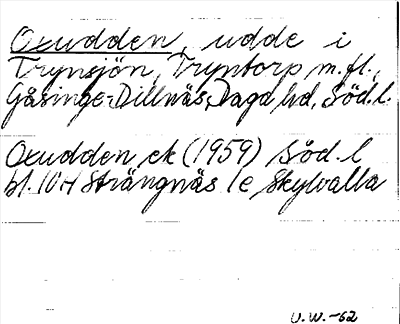 Oxudden, udde i
Trynsjön, Tryntorp m.fl.,
Gåsinge-Dillnäs, Daga hd, Söd.l.
Oxudden ek (1959) Söd.l
bl. 10H Strängnäs 1e Skylvalla
U.W.-62